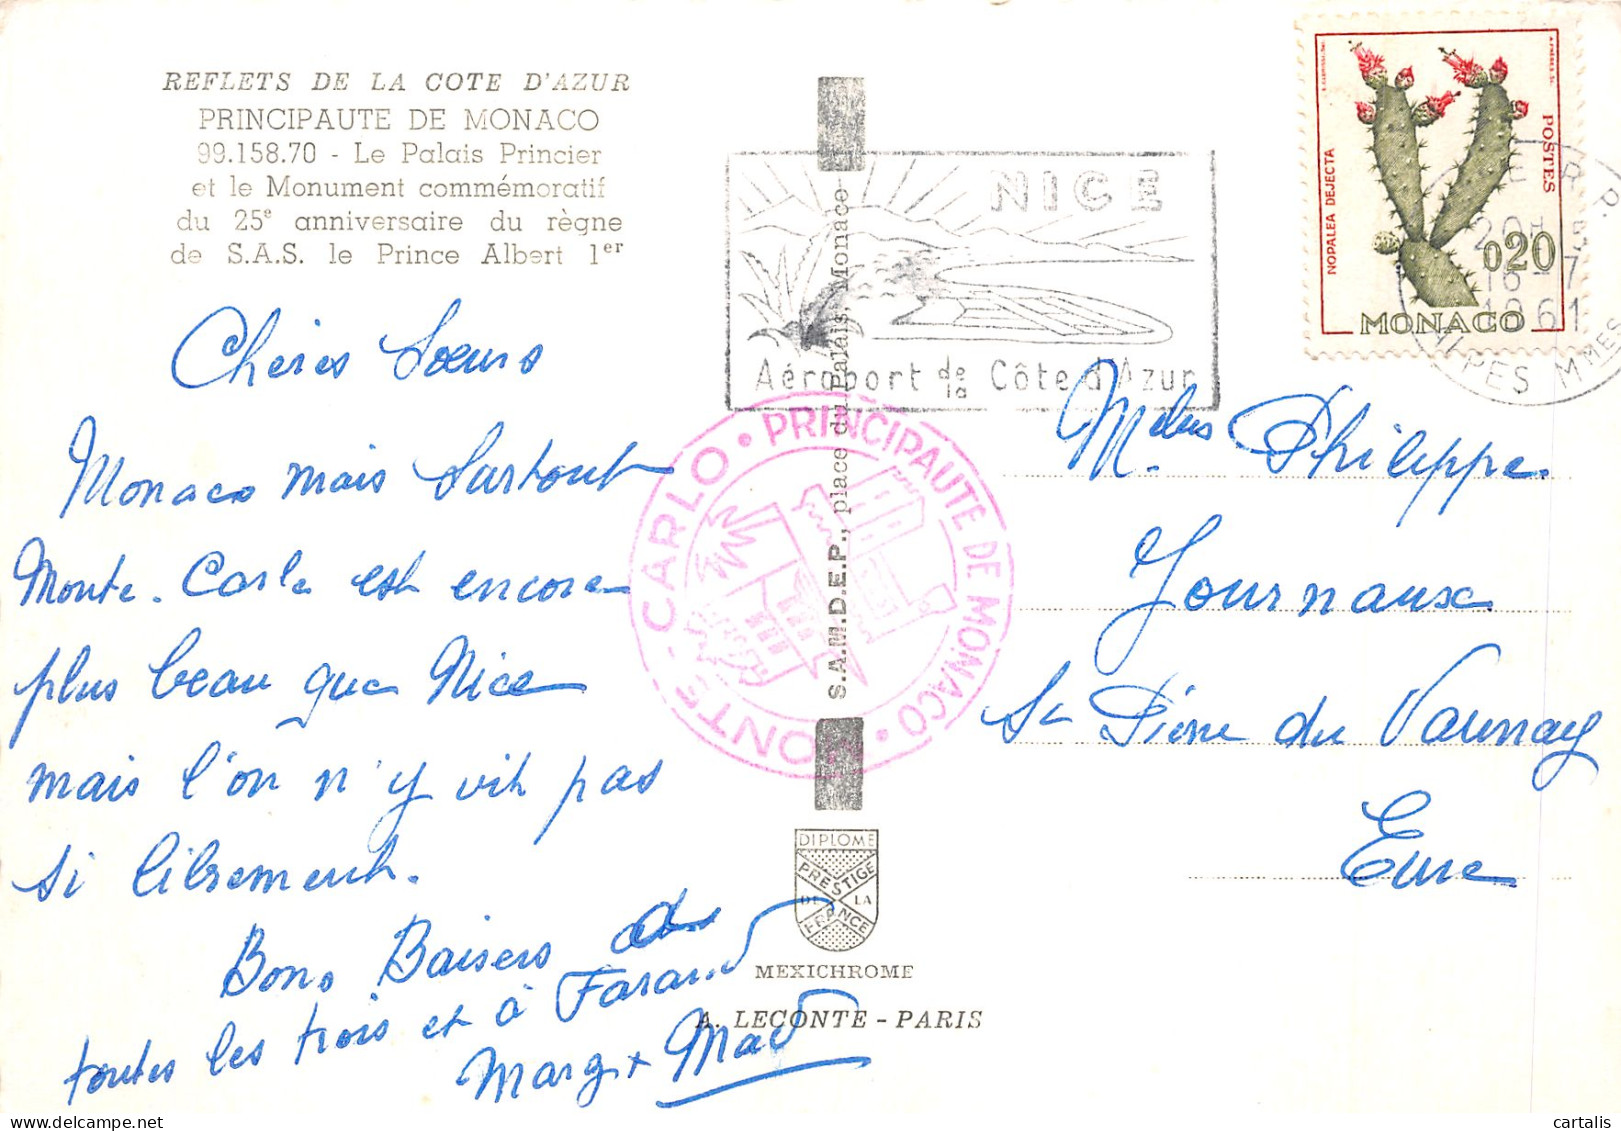 REFLETS DE LA COTE D'AZUR
PRINCIPAUTE DE MONACO
99.158.70 - Le Palais Princier
et le Monument commémoratif
du 25e anniversaire du règne
de S.A.S. le Prince Albert 1er
Chères Soeurs
Monaco mais surtout
Monte-Carlo est encore
plus beau que Nice
mais l'on n'y vit pas
si librement.
Bons Baisers de
toutes les trois et à
Marg + Mad
NICE
Aéroport de la Côte d'Azur
S.A.M.D.E.P., place du Palais, Monaco
MONTE-CARLO • PRINCIPAUTE DE MONACO •
DIPLOME
PRESTIGE
DE LA
FRANCE
MEXICHROME
A. LECONTE - PARIS
NOPALEA DEJECTA
POSTES
0,20
MONACO
16-7
1961
ALPES MMES
Melles Philippe
Journaux
St Pierre du Vauvray
Eure
cartalis